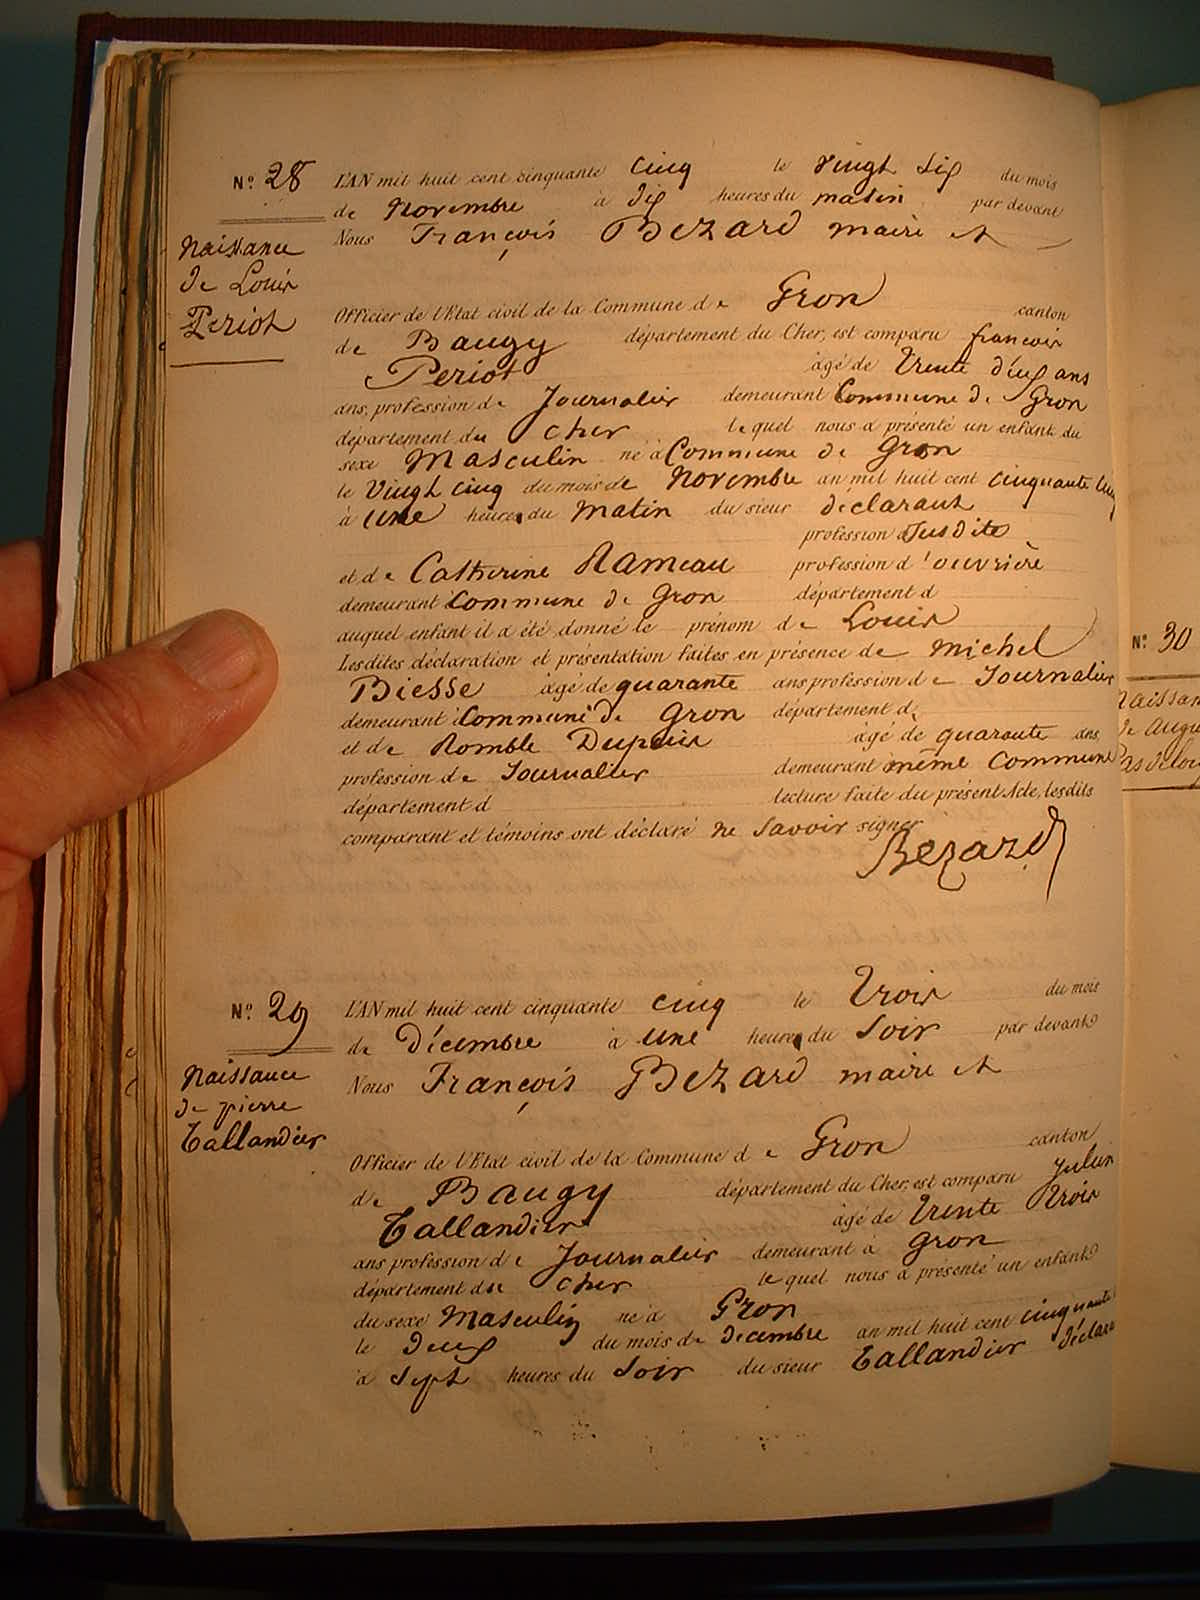 N.º 28
Naissance
de Louis
Periot
L'AN mil huit cent cinquante cinq le vingt six du mois
de Novembre à dix heures du matin par devant
Nous François Bezard maire et
Officier de l'Etat civil de la Commune de Gron canton
de Baugy département du Cher, est comparu francois
Periot âgé de trente deux ans
ans, profession de Journalier demeurant Commune de Gron
département du Cher lequel nous a présenté un enfant du
sexe Masculin né à Commune de Gron
le Vingt cinq du mois de Novembre an mil huit cent cinquante cinq
à une heure du Matin du sieur déclarant
profession susdite
et de Catherine Rameau profession d'ouvrière
demeurant Commune de Gron département d
auquel enfant il a été donné le prénom de Louis
Lesdites déclaration et présentation faites en présence de michel
Biesse âgé de quarante ans profession de Journalier
demeurant Commune de Gron département d
et de Romble Dupuis âgé de quarante ans,
profession de Journalier demeurant même Commune
département d lecture faite du présent Acte, lesdits
comparant et témoins ont déclaré ne savoir signer
Bezard
N.º 29
Naissance
de pierre
Tallandier
L'AN mil huit cent cinquante cinq le trois du mois
de Décembre à une heure du Soir par devant
Nous François Bezard maire et
Officier de l'Etat civil de la Commune de Gron canton
de Baugy département du Cher, est comparu Julien
Tallandier âgé de trente trois
ans profession de Journalier demeurant à Gron
département du Cher lequel nous a présenté un enfant
du sexe Masculin né à Gron
le deux du mois de décembre an mil huit cent cinquante
à Sept heures du Soir du sieur Tallandier déclara
N.º 30
Naissan
de Augu